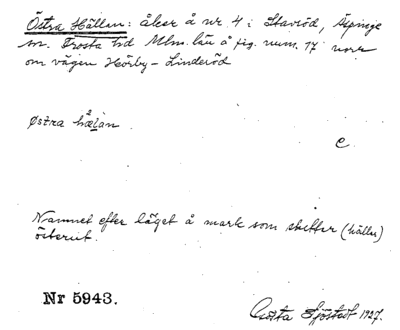 Östra Hällen: åker å nr 4 i Stavröd, Äspinge
sn. Frosta hd Mlm. län å fig. num. 17 norr
om vägen Hörby - Linderöd
østra hælan
e
Namnet efter läget å mark som sluttar (häller)
österut.
Nr 5943.
Gösta Sjöstedt 1927.